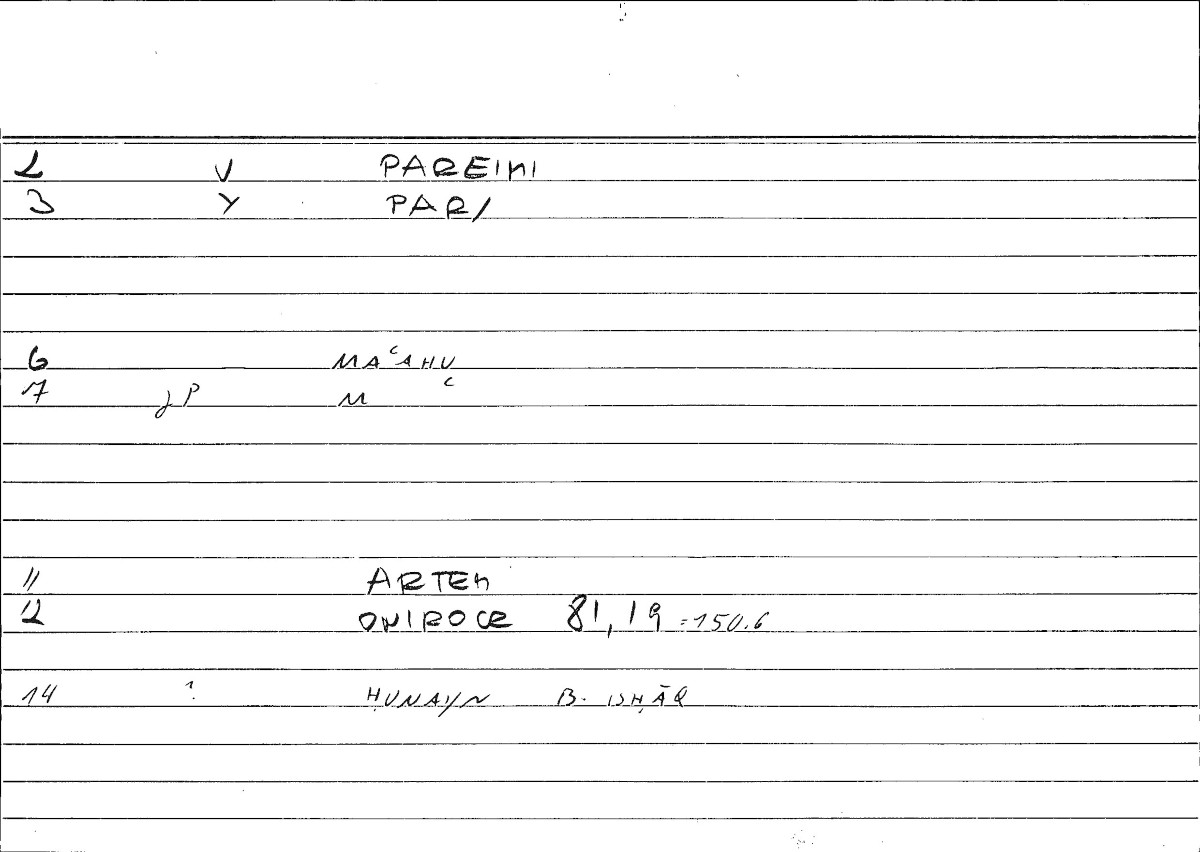 2 V PAREINI
3 Y PAR/
6 MAʿAHU
7 jP M ʿ
11 ARTEM
12 ONIROCR 81,19 =150.6
14 ? ḤUNAYN B. ISḤĀQ